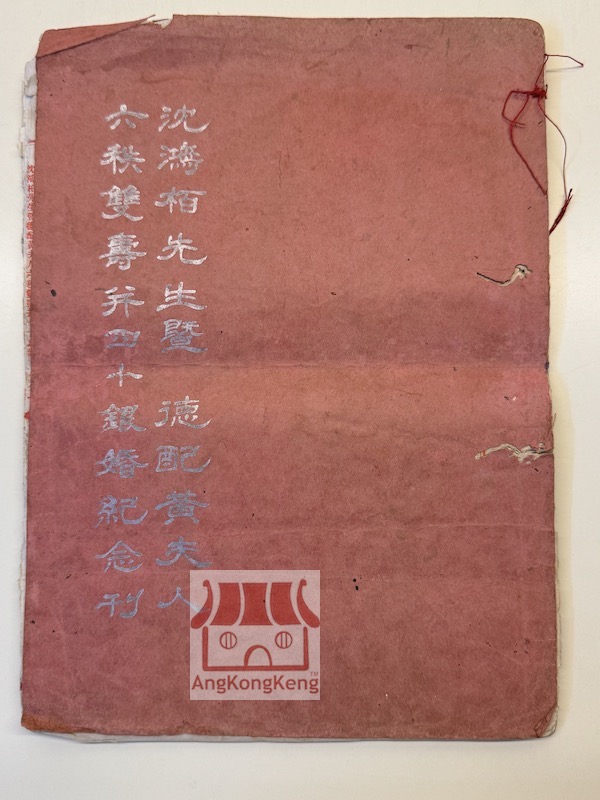 沈鴻栢先生暨 德配黃夫人
六秩雙壽并四十銀婚紀念刊
AngKongKeng™